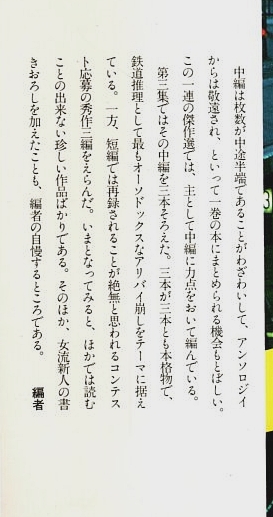 中編は枚数が中途半端であることがわざわいして、アンソロジイ
からは敬遠され、といって一巻の本にまとめられる機会もとぼしい。
この一連の傑作選では、主として中編に力点をおいて編んでいる。
第三集ではその中編を三本そろえた。三本が三本とも本格物で、
鉄道推理として最もオーソドックスなアリバイ崩しをテーマに据え
ている。一方、短編では再録されることが絶無と思われるコンテス
ト応募の秀作三編をえらんだ。いまとなってみると、ほかでは読む
ことの出来ない珍しい作品ばかりである。そのほか、女流新人の書
きおろしを加えたことも、編者の自慢するところである。
編者